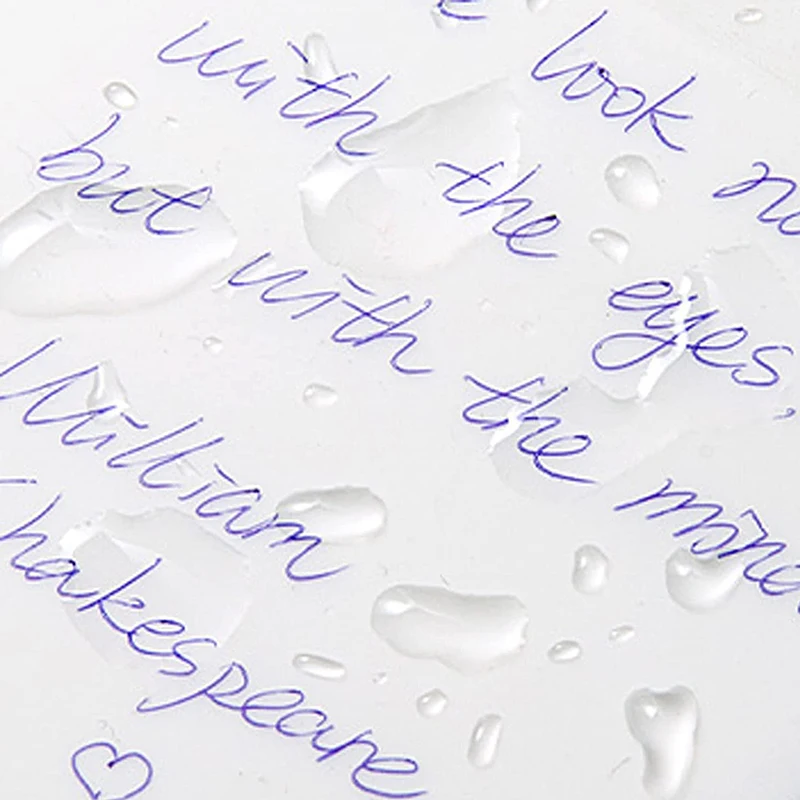 look no
with the eyes,
but with the mind
William
Shakespeare